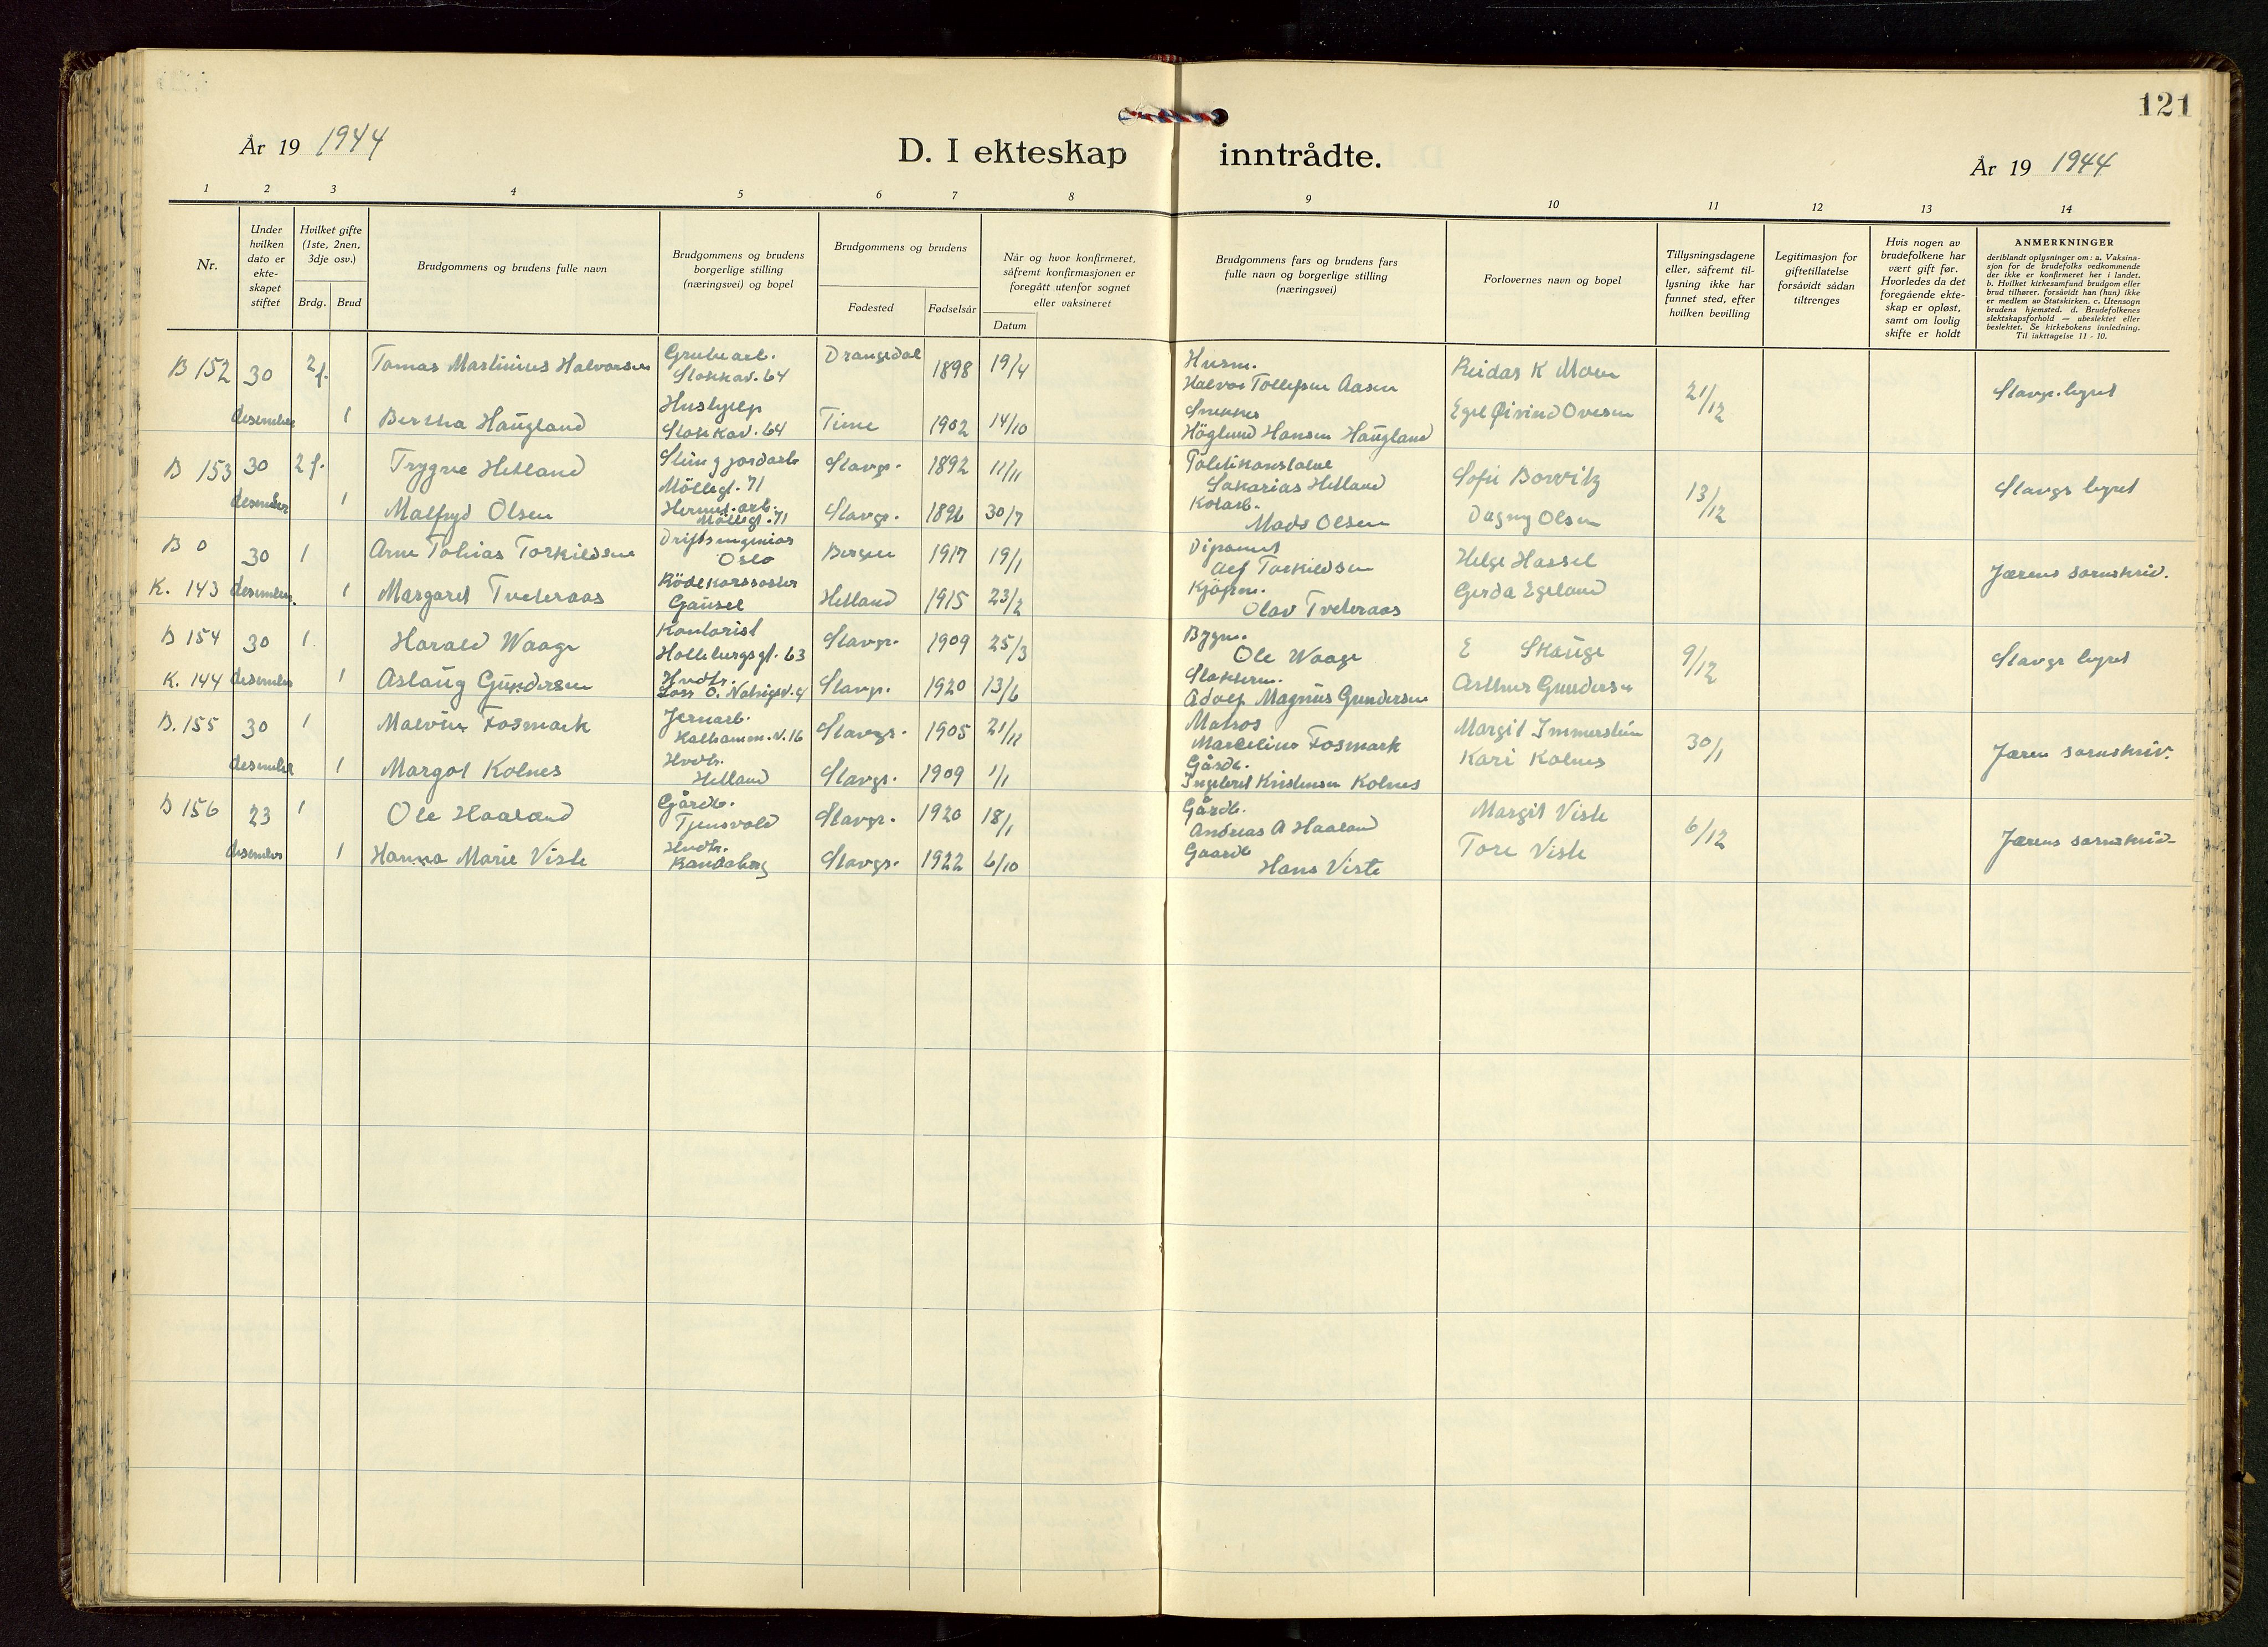 121
År 19 1944
D. I ekteskap inntrådte.
År 19 1944
1 2 3 4 5 6 7 8 9 10 11 12 13 14
Nr.
Under
hvilken
dato er
ekte-
skapet
stiftet
Hvilket gifte
(1ste, 2nen,
3dje osv.)
Brdg. Brud
Brudgommens og brudens fulle navn
Brudgommens og brudens
borgerlige stilling
(næringsvei) og bopel
Brudgommens og brudens
Fødested Fødselsår
Når og hvor konfirmeret,
såfremt konfirmasjonen er
foregått utenfor sognet
eller vaksineret
Datum
Brudgommens fars og brudens fars
fulle navn og borgerlige stilling
(næringsvei)
Forlovernes navn og bopel
Tillysningsdagene
eller, såfremt til-
lysning ikke har
funnet sted, efter
hvilken bevilling
Legitimasjon for
giftetillatelse
forsåvidt sådan
tiltrenges
Hvis nogen av
brudefolkene har
vært gift før.
Hvorledes da det
foregående ekte-
skap er opløst,
samt om lovlig
skifte er holdt
ANMERKNINGER
deriblandt oplysninger om: a. Vaksina-
sjon for de brudefolks vedkommende
der ikke er konfirmeret her i landet.
b. Hvilket kirkesamfund brudgom eller
brud tilhører, forsåvidt han (hun) ikke
er medlem av Statskirken. c. Utensogn
brudens hjemsted. d. Brudefolkenes
slektskapsforhold — ubeslektet eller
beslektet. Se kirkebokens innledning.
Til iakttagelse 11 - 10.
B 152 30 2 f. Tomas Martinius Halvorsen Grubearb. Stokkav. 64 Drangedal 1898 19/4 Husm. Halvor Tollefsen Aasen Reidar K Moen 21/12 Stavgr. byret
desember 1 Bertha Haugland Hushjelp Stokkav. 64 Time 1902 14/10 Snekker Höglund Hansen Haugland Egil Øivind Ovesen
B 153 30 2 f. Trygve Hetland Stein g jordarb Möllegt. 71 Stavgr. 1892 11/11 Politikonstabel Sakarias Hetland Sofie Borvitz 13/12 Stavgr byret
desember 1 Malfryd Olsen Hermet. arb. Möllegt. 71 Stavgr. 1896 30/7 Kolarb. Mads Olsen Dagny Olsen
B 0 30 1 Arne Tobias Torkildsen Driftsingeniør Oslo Bergen 1917 19/1 Alf Torkildsen Helge Hassel Jærens sorenskriv.
K. 143 desember. 1 Margaret Tveteraas Rödekorssøster Gausel Hetland 1915 23/2 Kjöpm. Olav Tveteraas Gerda Egeland
B 154 30 1. Harald Waage Kontorist Holbergsgt. 63 Stavgr. 1909 25/3 Bygm. Ole Waage E Skauge 9/12 Stavgr byret
K. 144 desember 1 Aslaug Gundersen Hvdtr. Stavgr. 1920 13/6 Adolf Magnus Gundersen Arthur Gundersen
B. 155 30 1 Malvin Fosmark Jernarb. Kalhamm. v. 16 Stavgr. 1905 21/11 Matros Marcelius Fosmark Margit Immerstein 30/1 Jæren sorenskriv.
desember 1 Margot Kolnes Hvdtr. Hetland Stavgr. 1909 1/1 Gårdb. Ingebret Kristensen Kolnes Kari Kolnes
B 156 23 1 Ole Haaland Gårdb. Tjensvold Stavgr. 1920 18/1 Gårdb. Andreas A Haaland Margit Viste 6/12 Jærens sorenskriv.
desember 1 Hanna Marie Viste Hvdtr. Randaberg Stavgr. 1922 6/10 Gaardb Hans Viste Tore Viste